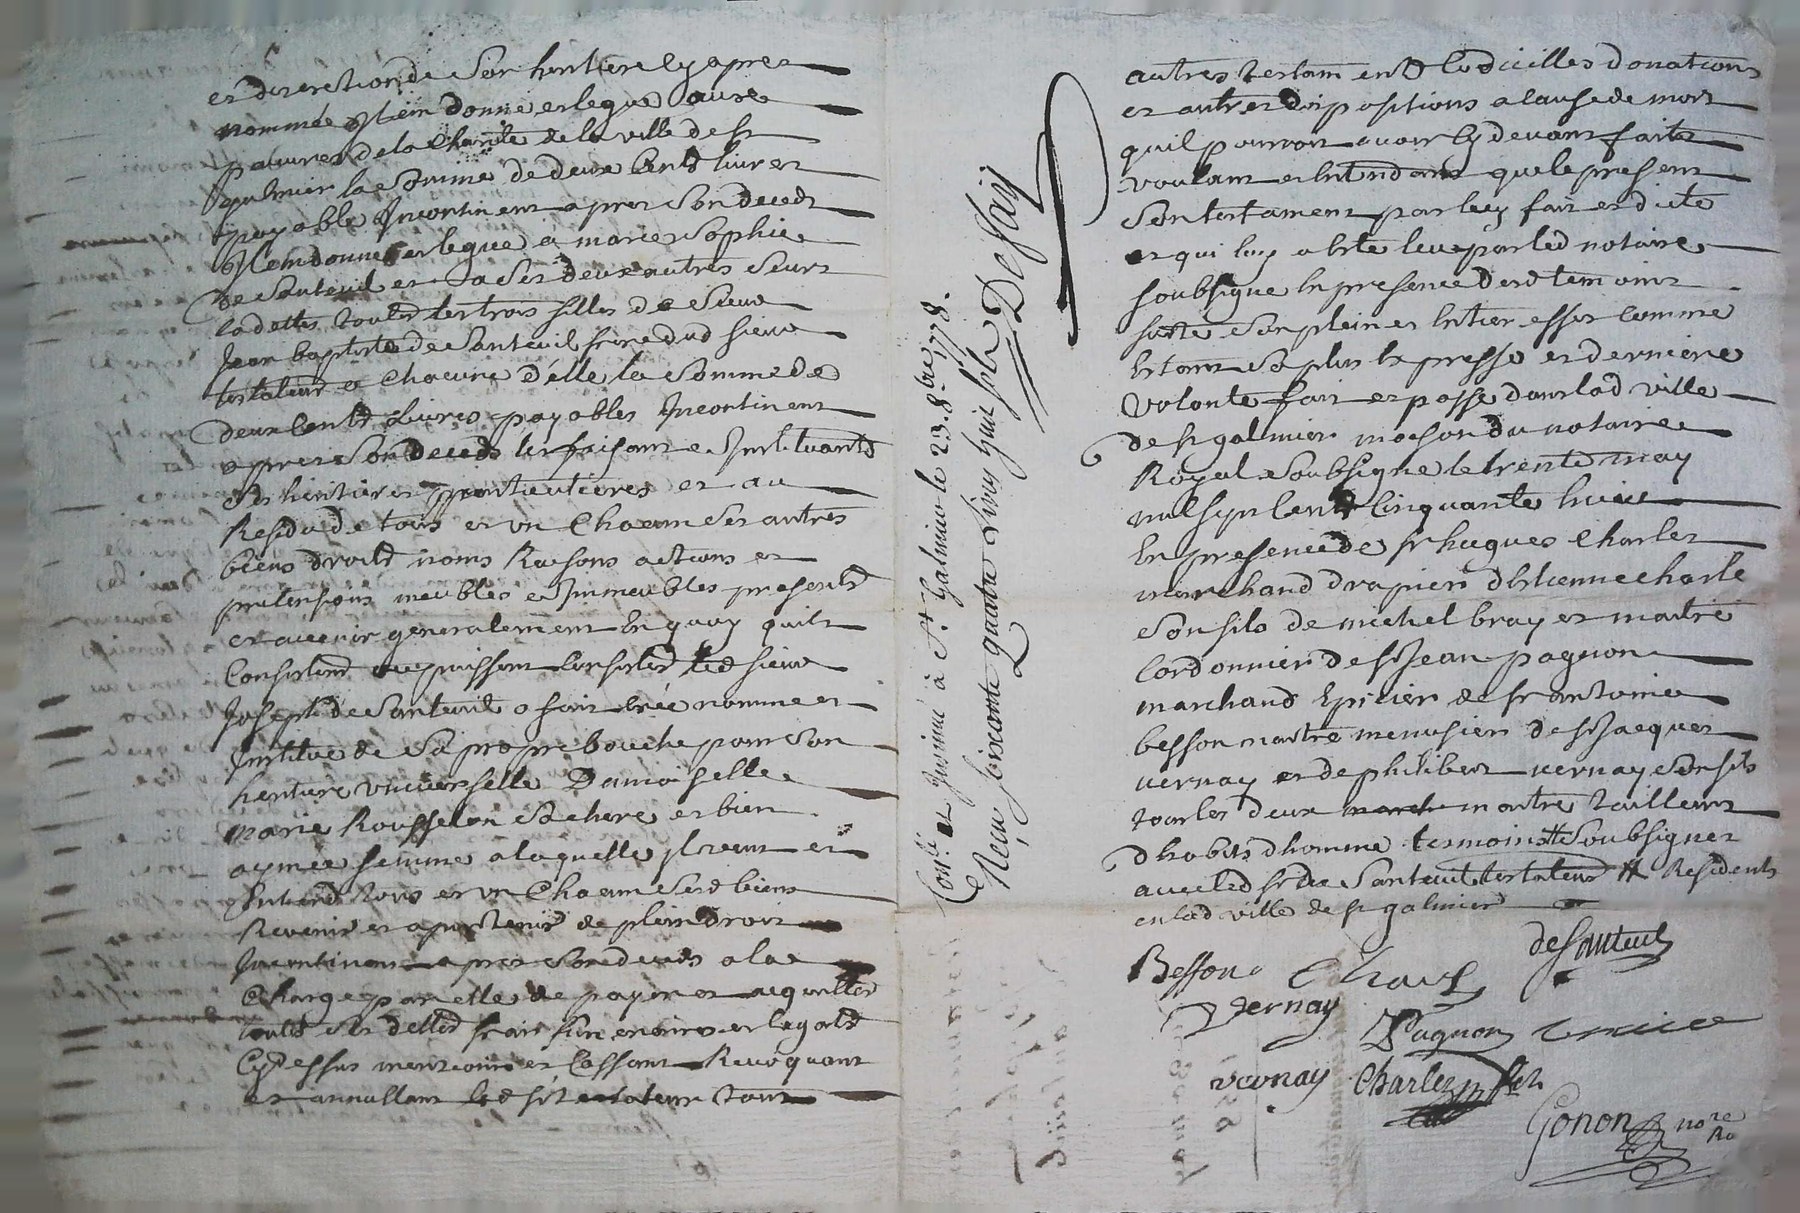 et discretion de son heritiere cy apres
nommée Item donne et legue aux
pauvres de la charité de la ville de st
galmier la somme de deux cents livres
payable Incontinent apres son deceds
Item donne et legue a marie sophie
de santeuil et a ses deux autres seurs
cadettes touts les trois filles de sieur
Jean baptiste de Santeuil frere dud sieur
testateur a chacune d'elle la somme de
deux cents livres payables Incontinent
apres son deceds les faisant et Instituants
ses heritieres particulieres et au
Residu de tous et un chacun ses autres
biens droits noms Raisons actions et
pretensions meubles et Immeubles presents
et avenir generalement En quoy quils
Consistent ou puissent consister led sieur
Joseph de Santeuil a fait créé nomme et
Institue de sa propre bouche pour son
heritiere universelle Damoiselle
marie Rousselon sa chere et bien
aymée femme a laquelle Il veut et
Entend tous et un chacun sesd biens
Revenir et apartenir de plein droit
Incontinent apres son deceds a la
charge par elle de payer et acquitter
touts ses dettes frais funeraires et legats
Cy dessus mentionnés Cassant Revoquant
et annullant led sr testateur tous
Conlé et Insinué à St. Galmier le 23. 8bre 1778.
Reçu soixante quatre livres huit sols Defay
autres testaments codicilles donations
et autres dispositions a cause de mort
quil pourroit avoir cy devant faites
voulant et Entendant que le present
son testament par luy fait et dicté
et qui luy a esté leu par led notaire
soubsigne En presence desd temoins
sorte son plein et Entier effet comme
Estant sa plus Expresse et derniere
volonte fait et passe dans lad ville
de st galmier maison du notaire
Royal soubsigne le trente may
mil sept cents cinquante huit
En presence de sr hugues charles
marchand drapier d'Estienne charle
son fils de michel bray et maitre
cordonnier de sr Jean pagnon
marchand Epicier de sr antoine
besson maitre menusier de sr Jacques
vernay et de philibert vernay son fils
tous les deux march maitre tailleurs
d habits d homme tesmoins # soubsignes
avec led sr de Santeuil testateur # Residents
en lad ville de st galmier
de Santeul
Besson Charles
Vernay
Pagnon
vernay Charles fils
Gonon nore Ro